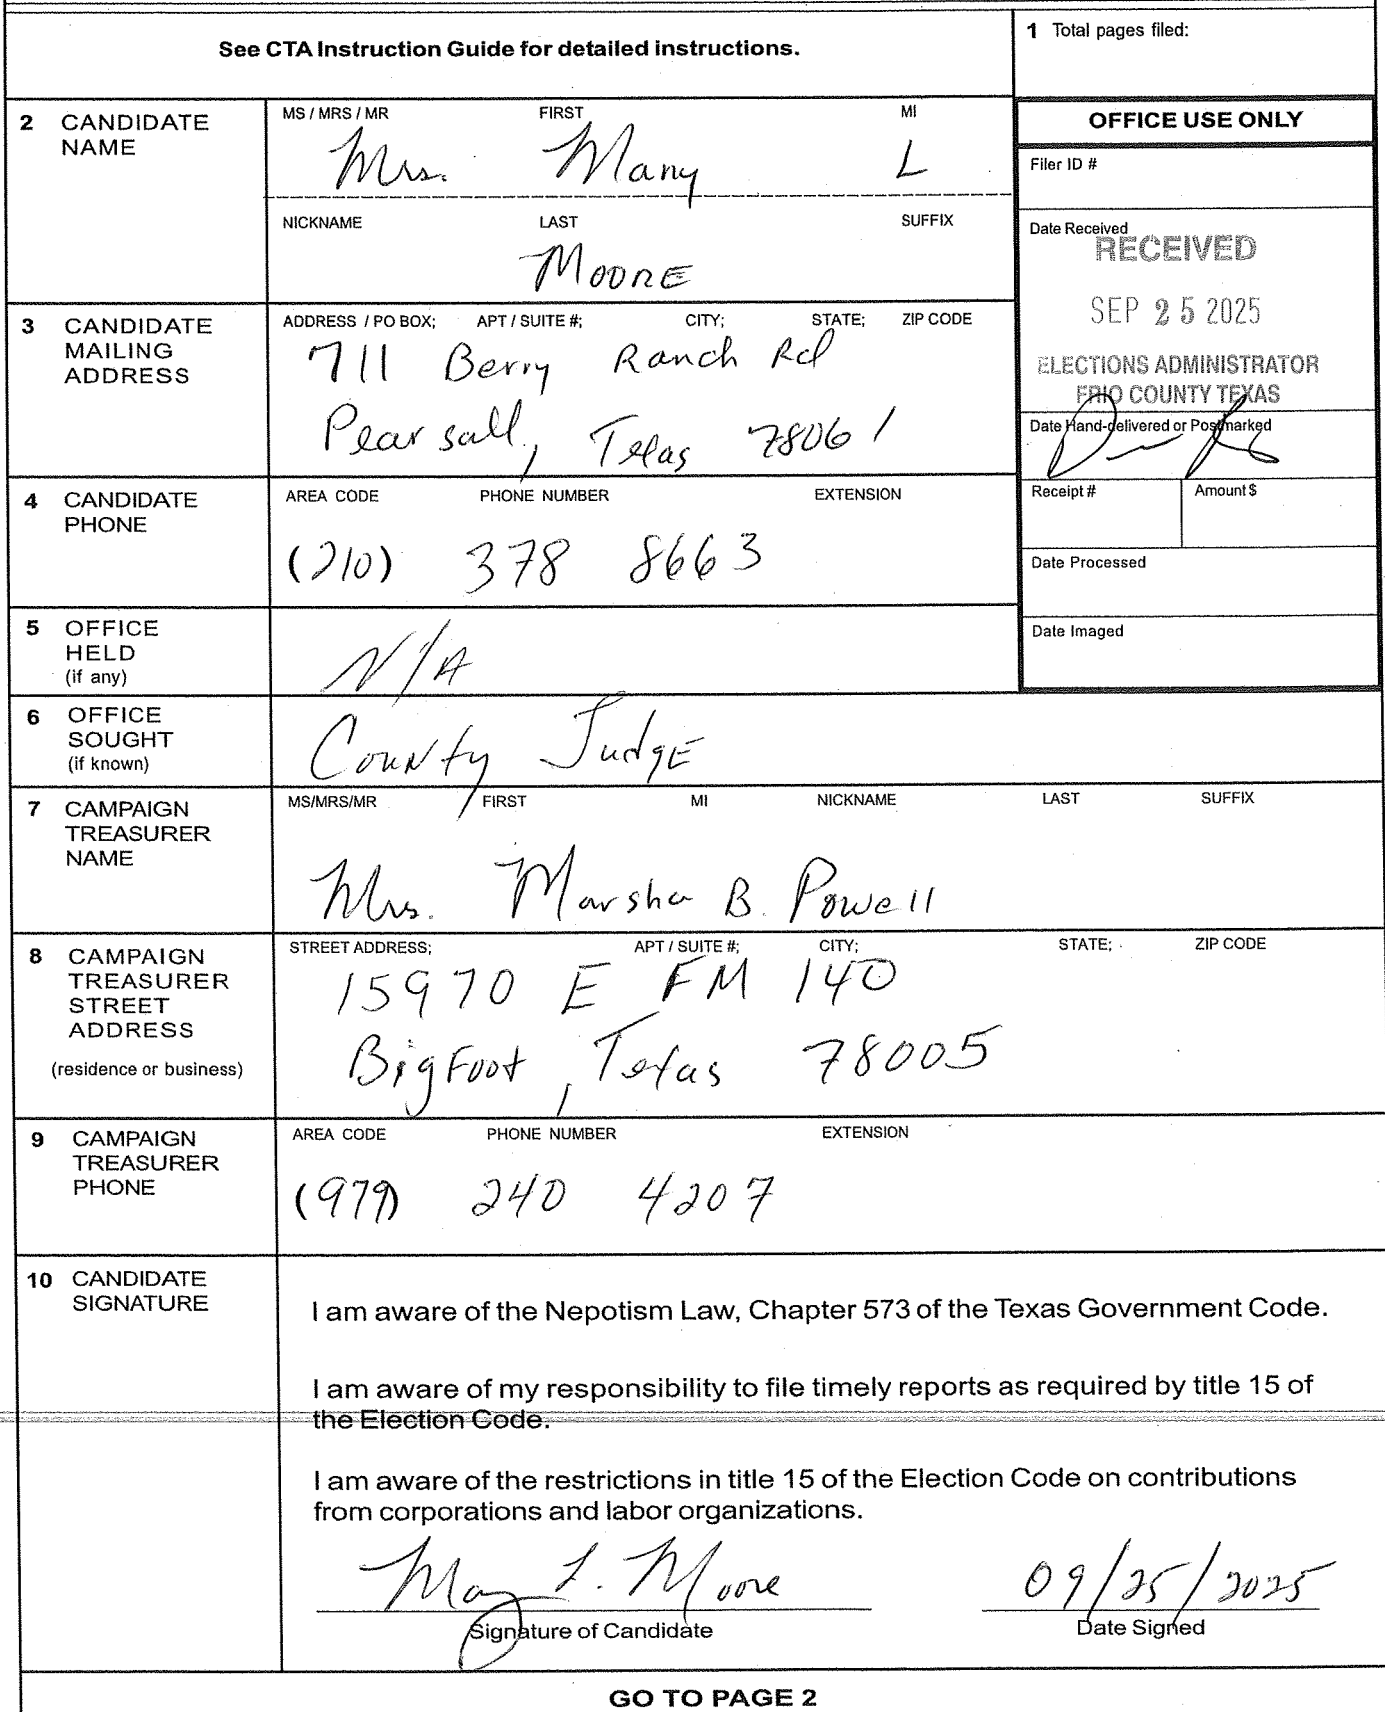 See CTA Instruction Guide for detailed instructions.
1 Total pages filed:
2 CANDIDATE NAME
MS / MRS / MR FIRST MI
Mrs. Mary L
NICKNAME LAST SUFFIX
MOORE
OFFICE USE ONLY
Filer ID #
Date Received
RECEIVED
SEP 25 2025
ELECTIONS ADMINISTRATOR
FRIO COUNTY TEXAS
Date Hand-delivered or Postmarked
Receipt # Amount $
Date Processed
Date Imaged
3 CANDIDATE MAILING ADDRESS
ADDRESS / PO BOX; APT / SUITE #; CITY; STATE; ZIP CODE
711 Berry Ranch Rd
Pearsall, Texas 78061
4 CANDIDATE PHONE
AREA CODE PHONE NUMBER EXTENSION
(210) 378 8663
5 OFFICE HELD (if any)
N/A
6 OFFICE SOUGHT (if known)
County Judge
7 CAMPAIGN TREASURER NAME
MS/MRS/MR FIRST MI NICKNAME LAST SUFFIX
Mrs. Marsha B. Powell
8 CAMPAIGN TREASURER STREET ADDRESS (residence or business)
STREET ADDRESS; APT / SUITE #; CITY; STATE; ZIP CODE
15970 E FM 140
Bigfoot, Texas 78005
9 CAMPAIGN TREASURER PHONE
AREA CODE PHONE NUMBER EXTENSION
(979) 240 4207
10 CANDIDATE SIGNATURE
I am aware of the Nepotism Law, Chapter 573 of the Texas Government Code.
I am aware of my responsibility to file timely reports as required by title 15 of
the Election Code.
I am aware of the restrictions in title 15 of the Election Code on contributions
from corporations and labor organizations.
Mary L. Moore 09/25/2025
Signature of Candidate Date Signed
GO TO PAGE 2